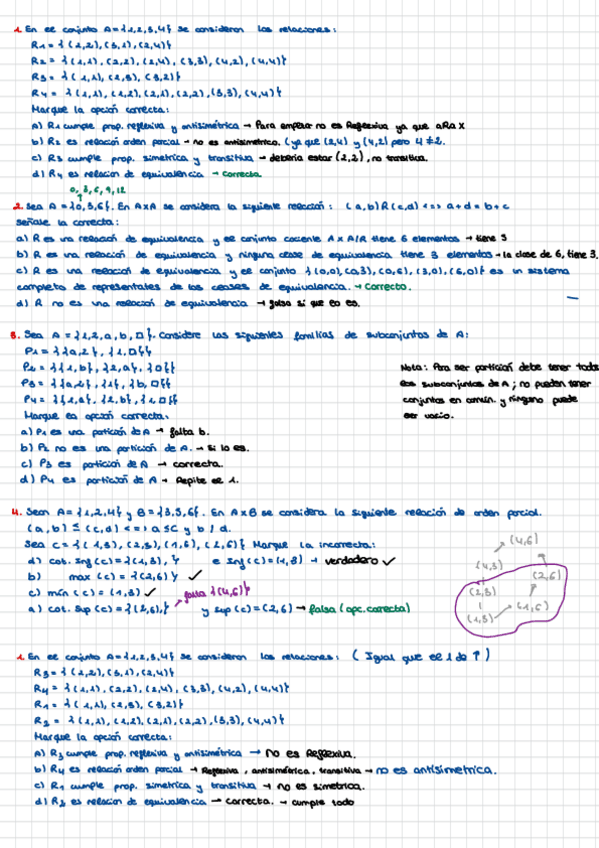 1. En el conjunto A={1,2,3,4} se consideran las relaciones:
R1 = {(2,2),(3,1),(2,4)}
R2 = {(1,1),(2,2),(2,4),(3,3),(4,2),(4,4)}
R3 = {(1,1),(2,3),(3,2)}
R4 = {(1,1),(1,2),(2,1),(2,2),(3,3),(4,4)}
Marque la opción correcta:
a) R1 cumple prop. reflexiva y antisimétrica → Para empezar no es Reflexiva ya que aRa x
b) R2 es relación orden parcial → no es antisimetrica. (ya que (2,4) y (4,2) pero 4≠2.
c) R3 cumple prop. simetrica y transitiva → debería estar (2,2), no transitiva.
d) R4 es relación de equivalencia → correcta.
0, 3, 6, 9, 12
2. Sea A = {0,3,6}. En AxA se considera la siguiente relación: (a,b)R(c,d) <=> a+d = b+c
señale la correcta:
a) R es una relación de equivalencia y el conjunto cociente AxA/R tiene 6 elementos → tiene 5
b) R es una relación de equivalencia y ninguna clase de equivalencia tiene 3 elementos → la clase de 6, tiene 3.
c) R es una relación de equivalencia y el conjunto {(0,0),(0,3),(0,6),(3,0),(6,0)} es un sistema
completo de representates de las clases de equivalencia. → Correcto.
d) R no es una relación de equivalencia → falso si que lo es.
3. Sea A = {1,2,a,b,□}. Considere las siguientes familias de subconjuntos de A:
P1 = {{a,2}, {1,□}}
P2 = {{1,b}, {2,a}, {□}}
P3 = {{a,2}, {1}, {b,□}}
P4 = {{1,a}, {2,b}, {1,□}}
Nota: Para ser partición debe tener todos
los subconjuntos de A; no pueden tener
conjuntos en común y ninguno puede
ser vacio.
Marque la opción correcta:
a) P1 es una partición de A → falta b.
b) P2 no es una partición de A. → si lo es.
c) P3 es partición de A → correcta.
d) P4 es partición de A → Repite el 1.
4. Sean A={1,2,4} y B={3,5,6}. En AxB se considera la siguiente relación de orden parcial.
(a,b) ≤ (c,d) <=> a≤c y b/d.
Sea C={(1,3),(2,3),(1,6),(2,6)} Marque la incorrecta:
d) cot. Inf (c)={(1,3)} e Inf(c)=(1,3) → verdadero ✓
b) max (c) = {(2,6)} ✓
c) mín (c) = (1,3) ✓ falta {(4,6)}
a) cot. Sup (c)={(2,6)} y sup (c)=(2,6) → falsa (opc. correcta)
(4,6)
(4,3)
(2,6)
(2,3)
(1,6)
(1,3)
1. En el conjunto A={1,2,3,4} se consideran las relaciones: (Igual que el 1 de ↑)
R3 = {(2,2),(3,1),(2,4)}
R4 = {(1,1),(2,2),(2,4),(3,3),(4,2),(4,4)}
R1 = {(1,1),(2,3),(3,2)}
R2 = {(1,1),(1,2),(2,1),(2,2),(3,3),(4,4)}
Marque la opción correcta:
a) R3 cumple prop. reflexiva y antisimétrica → no es Reflexiva.
b) R4 es relación orden parcial → Reflexiva, antisimétrica, transitiva → no es antisimetrica.
c) R1 cumple prop. simetrica y transitiva → no es simetrica.
d) R2 es relacion de equivalencia → correcta. → cumple todo